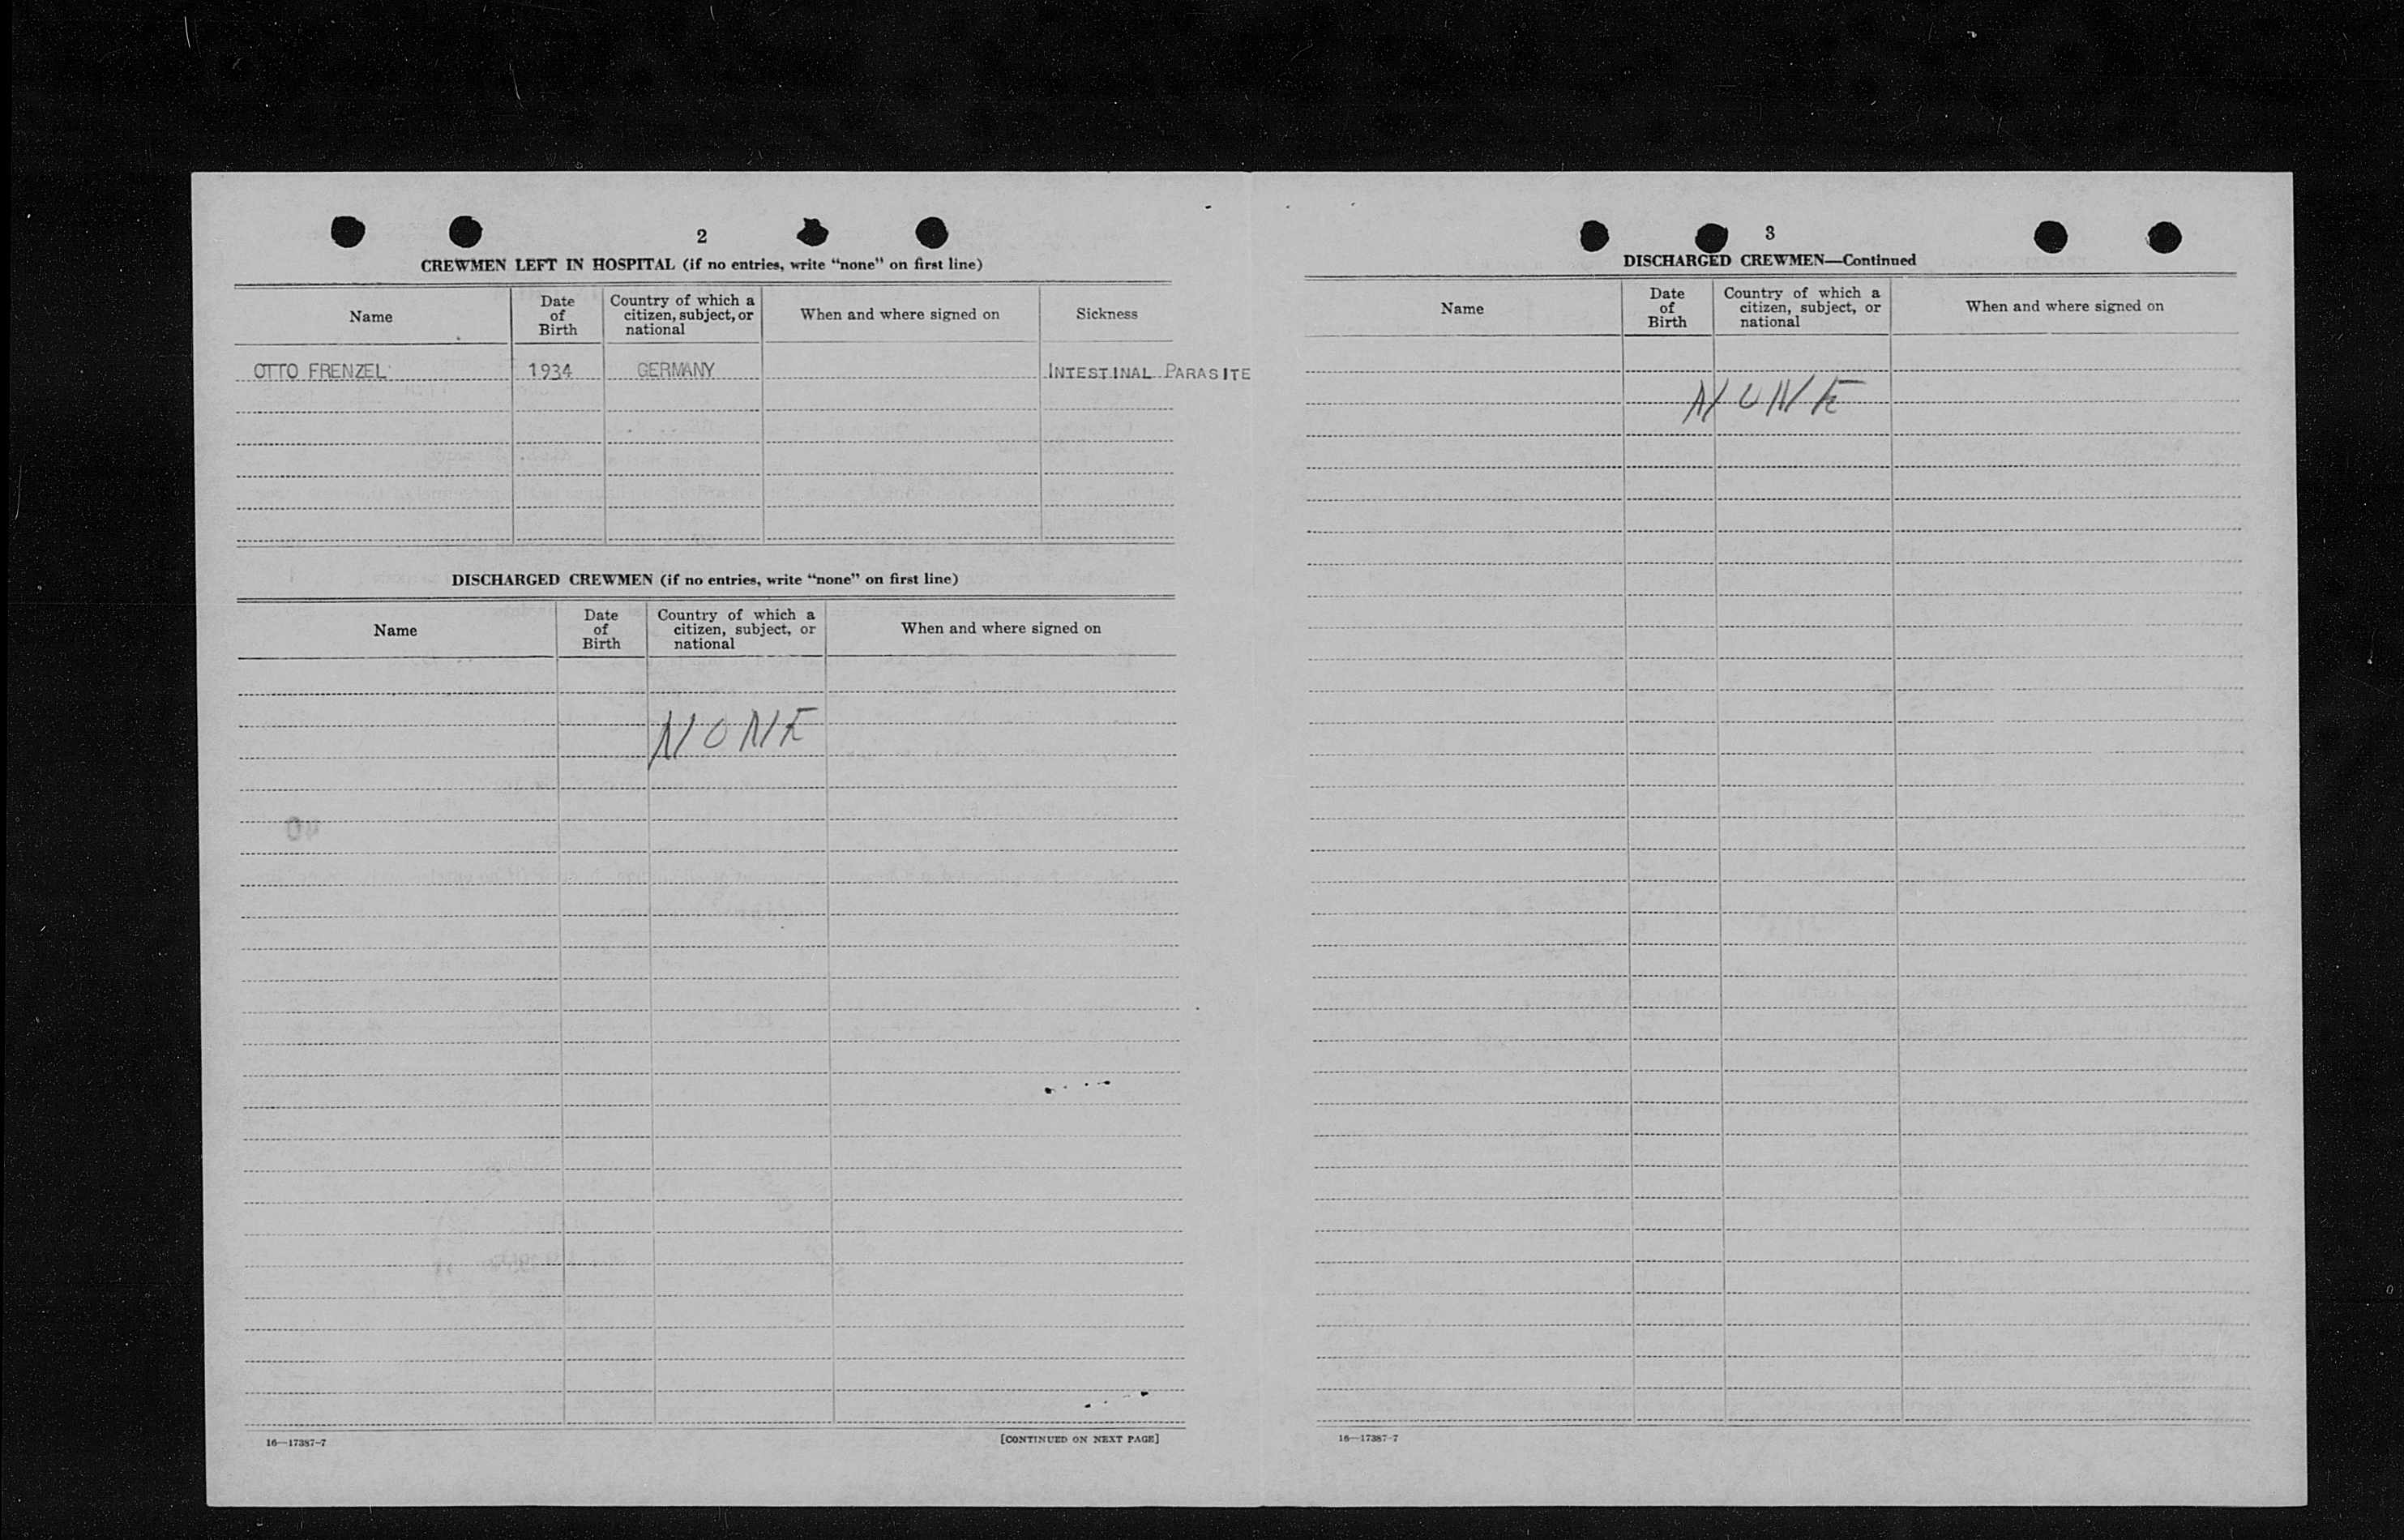 2
CREWMEN LEFT IN HOSPITAL (if no entries, write “none” on first line)
Name
Date of Birth
Country of which a citizen, subject, or national
When and where signed on
Sickness
OTTO FRENZEL 1934 GERMANY INTESTINAL PARASITE
DISCHARGED CREWMEN (if no entries, write “none” on first line)
Name
Date of Birth
Country of which a citizen, subject, or national
When and where signed on
NONE
16—17387-7
[CONTINUED ON NEXT PAGE]
3
DISCHARGED CREWMEN—Continued
Name
Date of Birth
Country of which a citizen, subject, or national
When and where signed on
NONE
16—17387-7